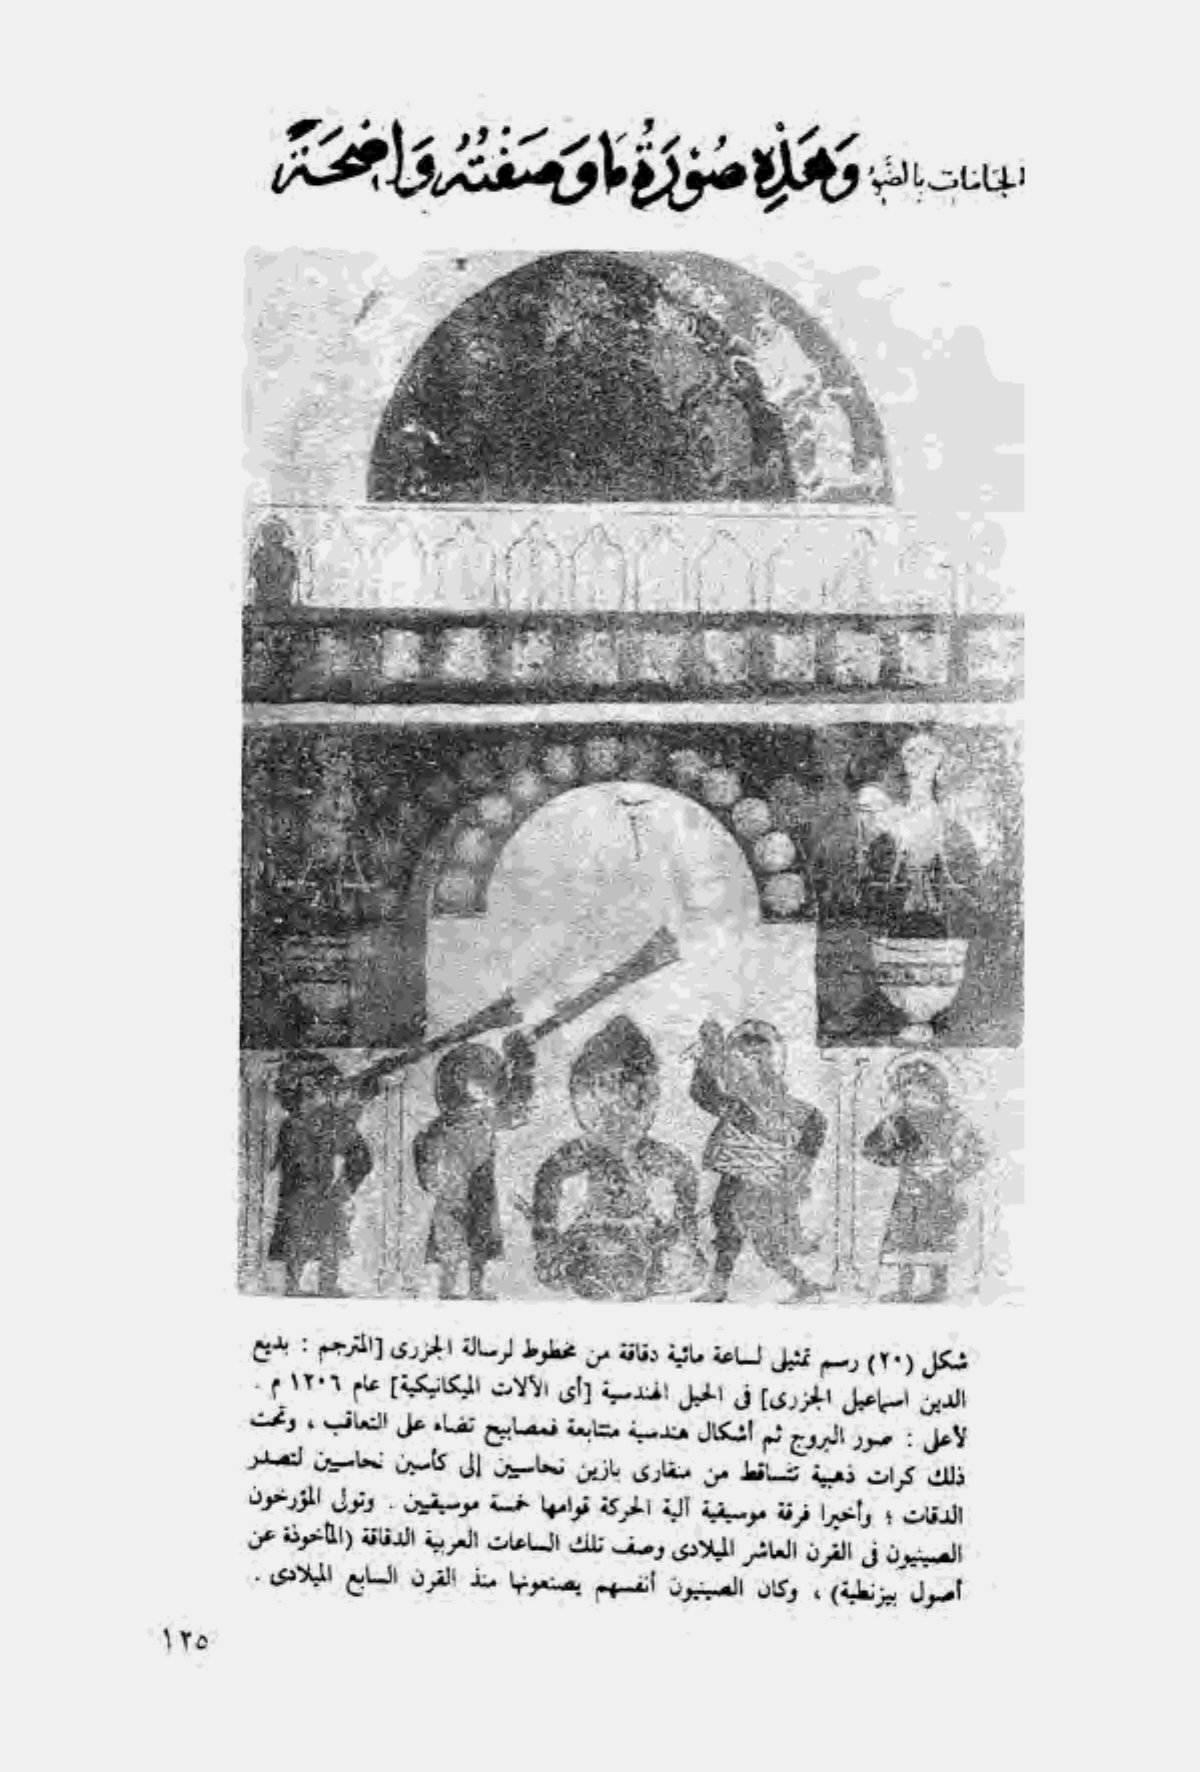 الجَامَات بالضَّوِ وَهَذِهِ صُورَةُ مَا وَصَفْتُهُ وَاضِحَةً
شكل (٢٠) رسم تمثيلى لساعة مائية دقاقة من مخطوط لرسالة الجزرى [المترجم : بديع
الدين اسماعيل الجزرى] فى الحيل الهندسية [أى الآلات الميكانيكية] عام ١٢٠٦ م .
لأعلى : صور البروج ثم أشكال هندسية متتابعة فمصابيح تضاء على التعاقب ، وتحت
ذلك كرات ذهبية تتساقط من منقارى بازين نحاسيين إلى كأسين نحاسيين لتصدر
الدقات ؛ وأخيرا فرقة موسيقية آلية الحركة قوامها خمسة موسيقيين . وتولى المؤرخون
الصينيون فى القرن العاشر الميلادى وصف تلك الساعات العربية الدقاقة (المأخوذة عن
أصول بيزنطية) ، وكان الصينيون أنفسهم يصنعونها منذ القرن السابع الميلادى .
١٢٥